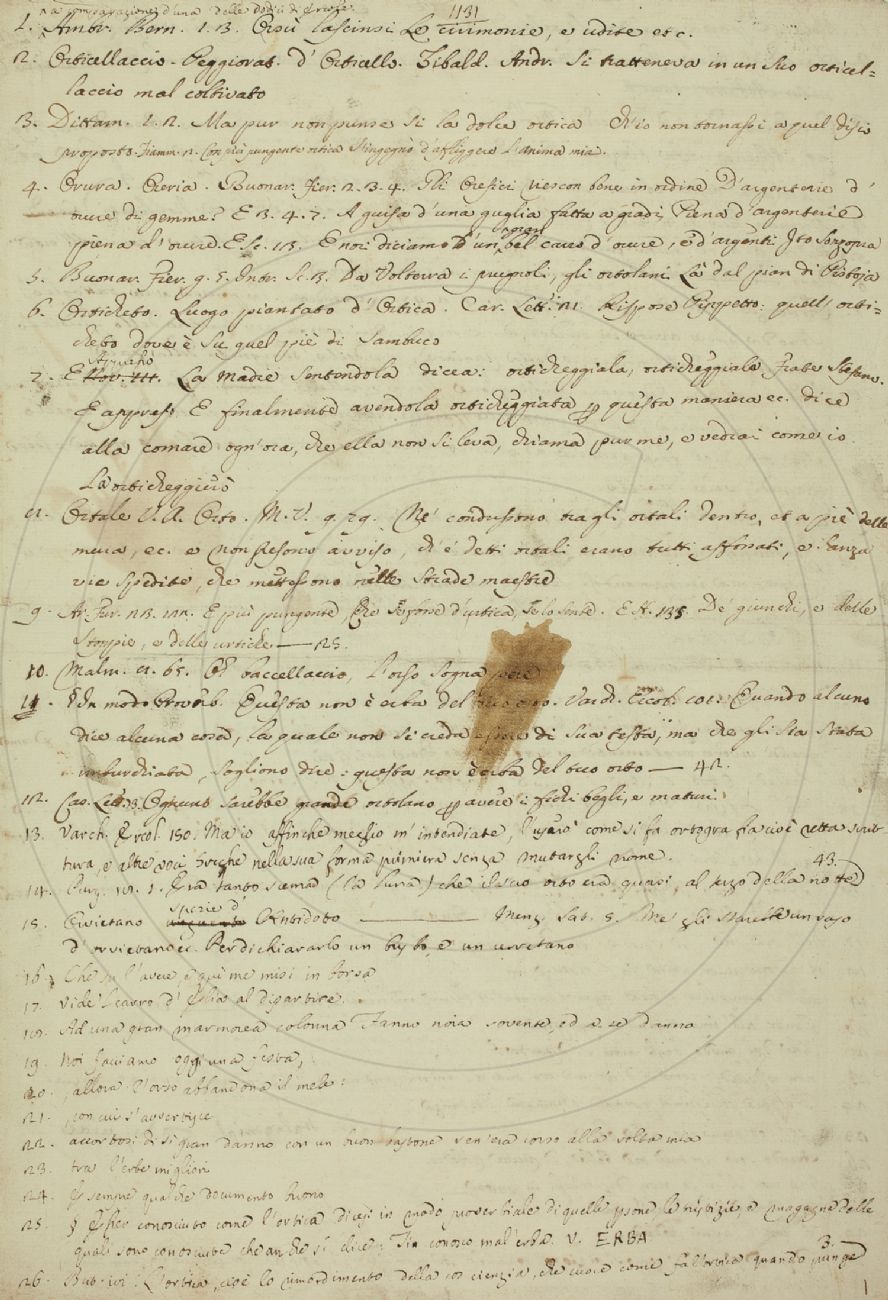 na comparazione d'una delle dodici di Ercole.
1131
1. Ambr. Bern. 1. 3. Orsù lascinsi le cirimonie, e udite etc.
2. Orticellaccio. Peggiorat. d'Orticello. Tibald. Andr. Si tratteneva in un suo orticel=
laccio mal coltivato
3. Dittam. 1. 2. Ma pur non punse sì la dolce ortica Ch'io non tornassi a quel
proposto. Fiamm. 2. Con più pungente ortica s'ingegnò d'affliggere l'anima mia.
4. Buonar. Fier. 2. 3. 4. Gli Orefici riescon bene in ordine D'argenterie d'
orure di gemme? E 3. 4. 7. A guisa d'una guglia fatta a gradi, Piena d'argenterie
piena d'orure. E Sc. 113. E noi diciamo D'un bel cavo d'orure, e d'argenti
5. Buonar. Fier. g. 5. Intr. Sc. 3. Da Volterra i prugnoli, gli ortolani Là dal pian di Pistoja
6. Orticheto. Luogo piantato d'Ortica. Car. Lett. 21. Rispose Pippetto: quell'orti=
cheto dove è su quel piè di Sambuco
7. E La Madre sentendola dicea: ortichéggiala, ortichéggiala Frate Stefano.
E appress. E finalmente avendola ortichéggiata p questa maniera ec. dice
alla comare ogn'ora, che ella non si leva, chiama pur me, e vedrai come io
La orticheggierò
8. Ortale V. A. Orto. M. V. 9. 29. Né condussono tra gli ortali dentro, et a piè delle
mura, ec. e non presono avviso, ch'e' detti ortali erano tutti affossati, e sanza
vie spedite, che mettessono nelle strade maestre
9. Ar. Fur. E più pungente, che se fosse d'urtica, se lo sente. E St. 135. De' giunchi, e delle
stoppie, e delle urtiche —— 25.
10. Malm. 8. 65. baccellaccio, l'orso sogna pere
11. § In modo Proverb. Questa non è erba del tuo orto. Varch. Ercol. 101: Quando alcuno
dice alcuna cosa, la quale non si creda essere di sua testa, ma che gli sia stata
imburchiata, sogliono dire: questa non è erba del tuo orto —— 42.
12. Cas. Lett. 73. Ognuno sarebbe grande ortolano p avere i fichi begli, e maturi
13. Varch. Ercol. 150. Ma io affinché meglio m'intendiate, l'userò come si fa ortografia cioè retta scrit=
tura, e altre voci Greche nella sua forma primiera senza mutargli nome.
43.
14. Purg. 18. 1. Era tanto scema (la Luna) che il suo orto era quasi al terzo della notte
15. Orvietano spezie d' Antidoto —— Menz. Sat. 5. Me' gli starebbe un vaso
d'orvietano ec. Per dichiararlo un bubbo, e un orvietano
16. Che su l'avere e quì me misi in borsa
17. Vide 'l carro d'Elia al dipartire
18. Ad una gran marmorea colonna Fanno noia sovente, ed a sé danno
19. Noi facciamo oggi una festa,
20. allora l'orso abbandona il mele:
21. con cui s'avvertisce
22. accortosi di sì gran danno con un buon bastone sen'era corso alla volta mia
23. tra l'erbe migliori
24. È sempre qualche documento buono
25. § Esser conosciuto come l'ortica dicesi in modo proverbiale di quelle psone, le nequizie, e magagne delle
quali sono conosciute che anche si dice: Tu conosco mal'erba. V. ERBA
3.
26. But. ivi: L'ortica, cioè lo rimordimento della coscienzia, che cuoce come fa l'ortica quando punge
1